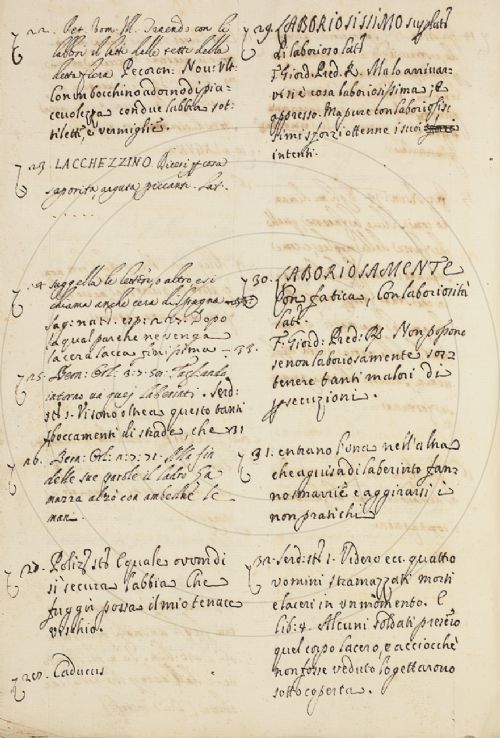 22. Pet. Vom. Ill. Tenendo con le
labbri il latte delle tette della
Pecoron: Nov: Ult:
Con un bocchino adorno di pia=
cevolezza con due labbia sot=
tiletti, e vermiglie.
23. LACCHEZZINO. Dicesi cosa
saporita, arguta, piccante. Lat.
. . . . .
24. suggella le lettere, o altro, e si
chiama anche cera di Spagna
Sag: nat: esp: Dopo
la qual pare che ne venga
la cera lacca finissima - 33.
25. Bern: Orl: 2: 7: 50: Tagliando
intorno va quej laberinti. Serd:
st: 1. Vi sono oltre a questo tanti
sboccamenti di strade, che 31
26. Bern: Orl: 2: 7: 71. Alle fin
delle sue parole il ladro
mazza alzò con ambedue le
man.
27. Poliz: st: Equale ovvom di
si secura labbia Che
fuggir possa il mio tenace
vischio.
28. Caducus
29. LABORIOSISSIMO Superlat:
di laborioso Lat:
F. Giord: Pred. R. Ma lo arrivar=
vi si è cosa laboriosissima; E
appresso. Ma pure con laboriosis=
simi sforzi ottenne i suoi
intenti.
30. LABORIOSAMENTE
Con fatica, Con laboriosità
Lat:
F: Giord: Pred: R. Non possono
se non laboriosamente sos=
tenere tanti malori di
psecuzioni.
31. entrano l'una nell'altra
che a guisa di laberinto fan=
no smarrire e aggirarsi i
non pratichi
32. Serd: st: 1. Videro ecc. quattro
vomini stramazzati morti
e laceri in un momento. E
lib: 4. Alcuni soldati presero
quel corpo lacero, e acciocchè
non fosse veduto lo gettarono
sotto coperta.